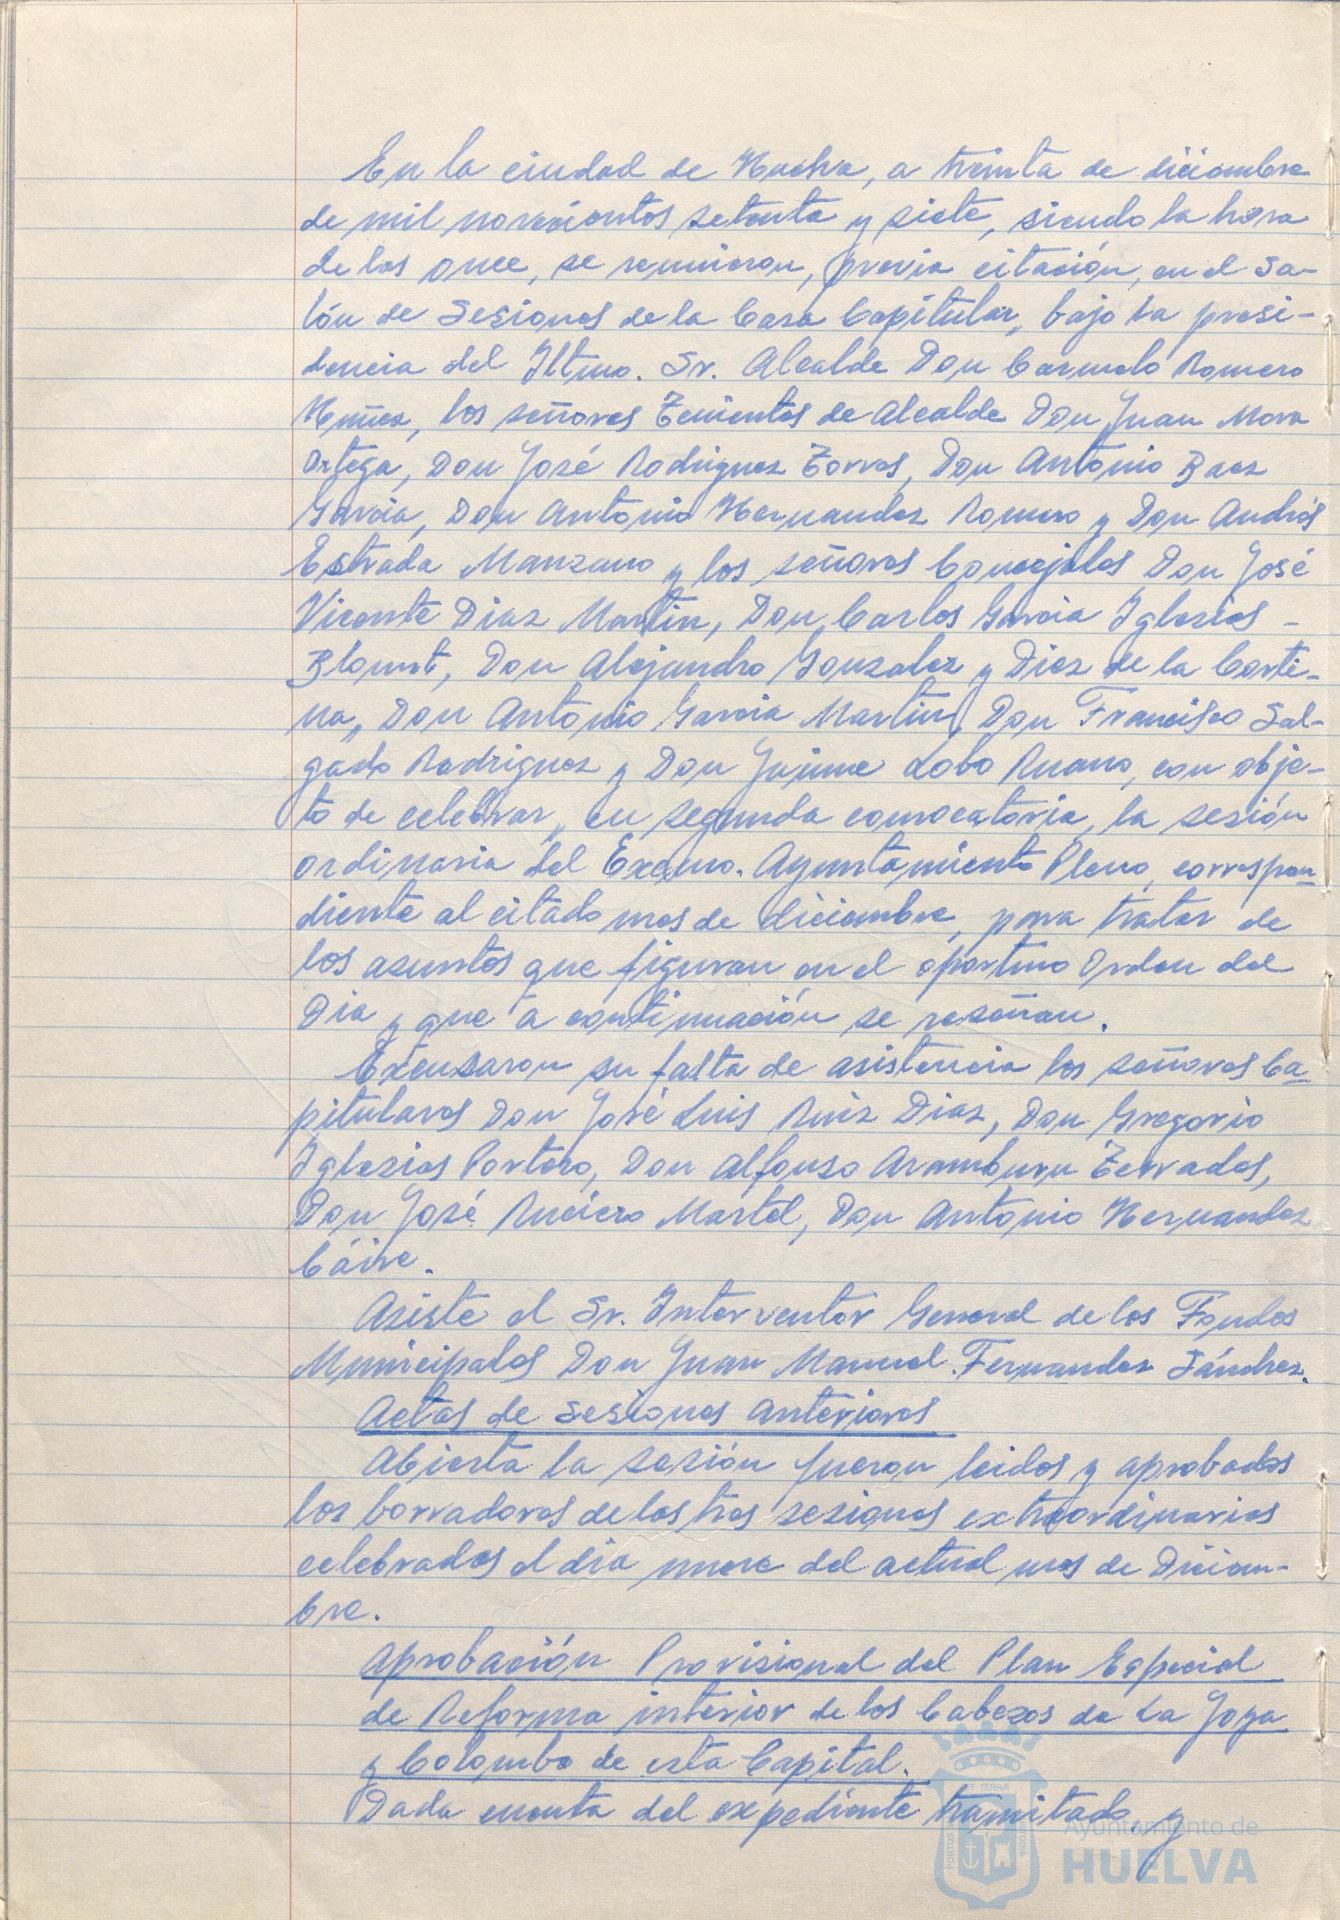 En la ciudad de Huelva, a treinta de diciembre
de mil novecientos setenta y siete, siendo la hora
de las once, se reunieron, previa citación, en el Sa-
lón de Sesiones de la Casa Capitular, bajo la presi-
dencia del Iltmo. Sr. Alcalde Don Carmelo Romero
Nuñez, los señores Tenientes de Alcalde Don Juan Mora
Ortega, Don José Rodriguez Torres, Don Antonio Baez
Garcia, Don Antonio Hernandez Romero y Don Andrés
Estrada Manzano y los señores Concejales Don José
Vicente Diaz Martin, Don Carlos Garcia Iglesias -
Blount, Don Alejandro Gonzalez y Diez de la Corti-
na, Don Antonio Garcia Martin, Don Francisco Sal-
gado Rodriguez y Don Jaime Lobo Ruano, con obje-
to de celebrar, en segunda convocatoria, la sesión
ordinaria del Excmo. Ayuntamiento Pleno, correspon-
diente al citado mes de diciembre, para tratar de
los asuntos que figuran en el oportuno Orden del
Dia y que a continuación se reseñan.
Excusaron su falta de asistencia los señores Ca-
pitulares Don José Luis Ruiz Diaz, Don Gregorio
Iglesias Portero, Don Alfonso Aramburu Terrades,
Don José Ruciero Martel, Don Antonio Hernandez
Asiste el Sr. Interventor General de los Fondos
Municipales Don Juan Manuel Fernandez Sánchez.
Actas de Sesiones Anteriores
Abierta la sesión fueron leidos y aprobados
los borradores de las tres sesiones extraordinarias
celebradas el dia nueve del actual mes de Diciem-
bre.
Aprobación Provisional del Plan Especial
de Reforma interior de los Cabezos de La Joya
y Colombo de esta Capital.
Dada cuenta del expediente tramitado y
Ayuntamiento de
HUELVA